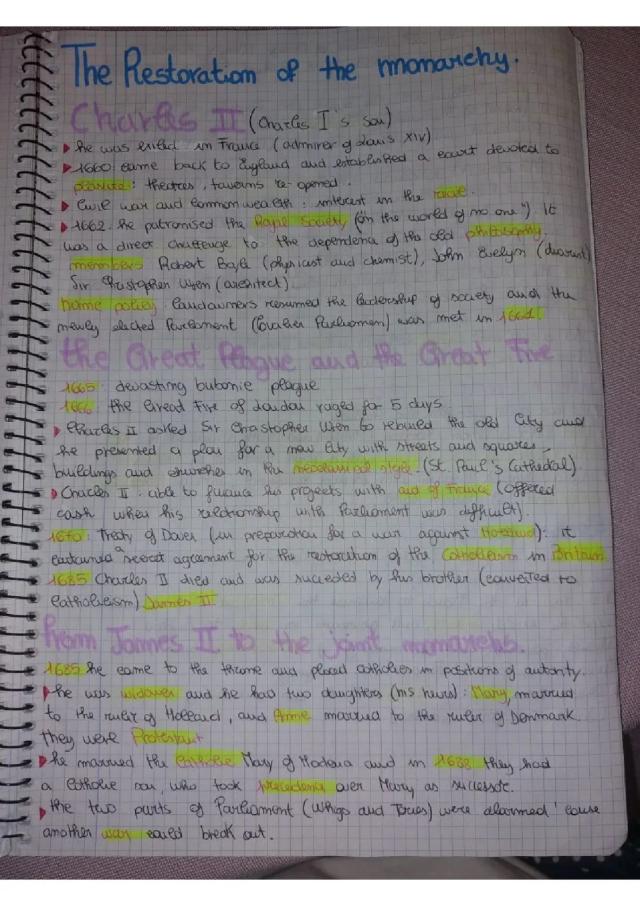 The Restoration of the monarchy.
Charles II (Charles I's son)
he was exiled in France (admirer of Louis XIV)
1660 came back to England and established a court devoted to
pleasure: theatres, taverns re-opened.
Civil war and Commonwealth: interest in the
1662 he patronised the Royal Society (on the world of no one"). It
was a direct challenge to the dependence of the old philosophy.
members Robert Boyle (physicist and chemist), John Evelyn (diarist)
Sir Christopher Wren (architect)
home policy: landowners resumed the leadership of society and the
newly elected Parliament (Cavalier Parliament) was met in 1661.
the Great Plague and the Great Fire
1665: devasting bubonic plague
1666: the Great Fire of London raged for 5 days
Charles II asked Sir Christopher Wren to rebuild the old City and
he presented a plan for a new City with streets and squares,
buildings and churches in the neoclassical style. (St. Paul's Cathedral).
Charles II: able to finance his projects with aid of France (offered
cash when his relationship with Parliament was difficult).
1670: Treaty of Dover (in preparation for a war against Holland): it
contained a secret agreement for the restoration of the Catholicism in Britain
1685 Charles II died and was succeded by his brother (converted to
Catholicism) James II
from James II to the joint monarchs.
1685 he came to the throne and placed catholics in positions of autority.
he was widower and he had two daughters (his heirs): Mary, married
to the ruler of Holland, and Anne married to the ruler of Denmark.
they were Protestant
he married the Catholic Mary of Modena and in 1688 they had
a Catholic son, who took precedence over Mary as successor.
the two parts of Parliament (Whigs and Tories) were alarmed 'cause
another war could break out.